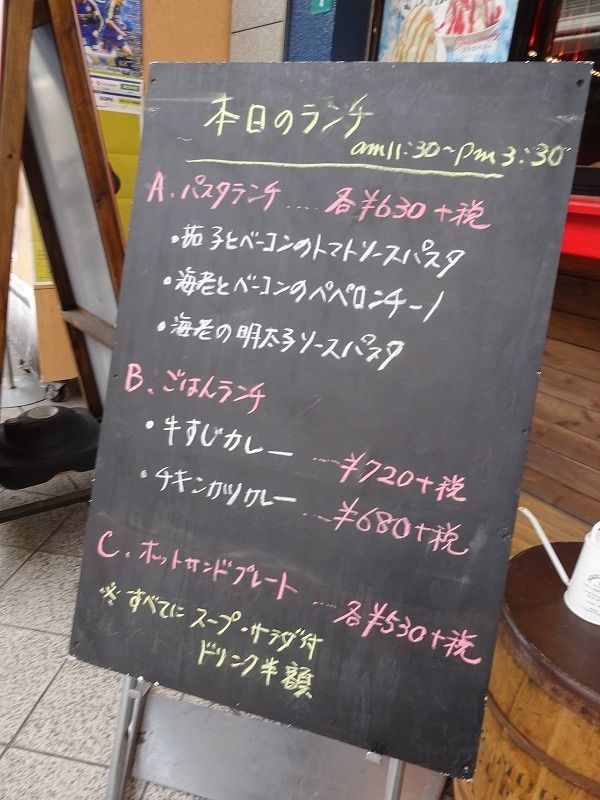 本日のランチ
am11:30~pm3:30
A. パスタランチ ..... 各¥630+税
・茄子とベーコンのトマトソースパスタ
・海老とベーコンのペペロンチーノ
・海老の明太子ソースパスタ
B. ごはんランチ
・牛すじカレー ..... ¥720+税
・チキンカツカレー ..... ¥680+税
C. ホットサンドプレート ..... 各¥530+税
※すべてに スープ・サラダ付
ドリンク半額